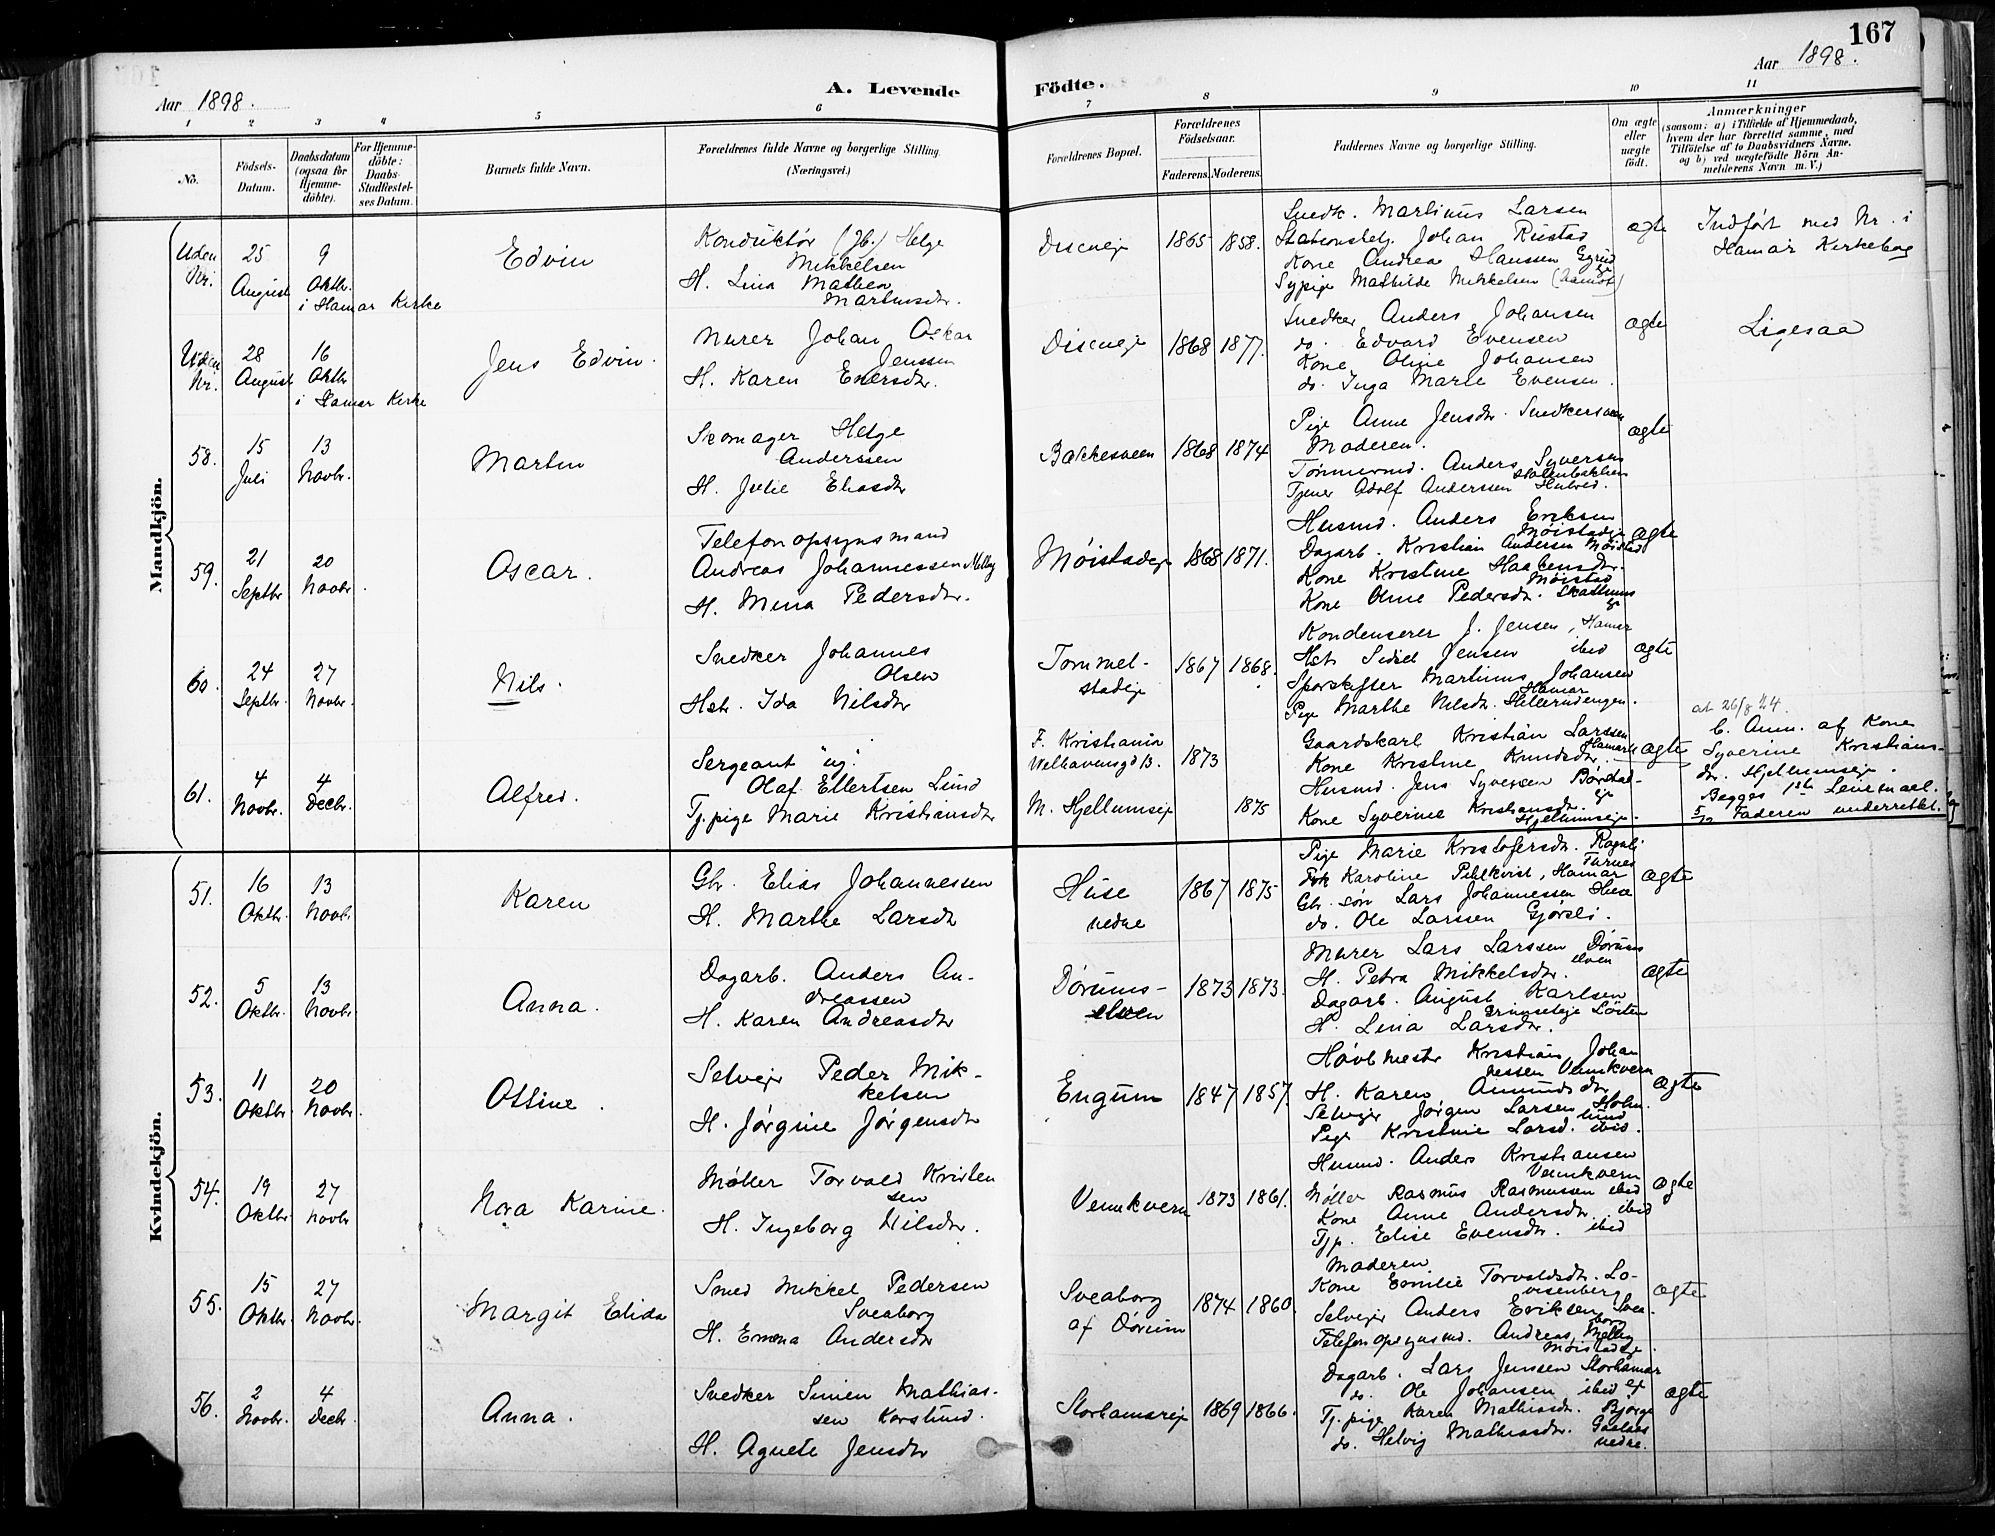 167
Aar 1898.
A. Levende
Födte.
Aar 1898.
1 2 3 4 5 6 7 8 9 10 11
No.
Födsels-
Datum.
Daabsdatum
(ogsaa for
Hjemme-
döbte).
For Hjemme-
döbte:
Daabs-
Stadfæstel-
ses Datum.
Barnets fulde Navn.
Forældrenes fulde Navne og borgerlige Stilling.
(Næringsvei.)
Forældrenes Bopæl.
Forældrenes
Födselsaar.
Faderens. Moderens.
Faddernes Navne og borgerlige Stilling.
Om ægte
eller
uægte
født.
Anmærkninger
(saasom: a) i Tilfælde af Hjemmedaab,
hvem der har forrettet samme, med
Tilföielse af to Daabsvidners Navne,
og b) ved uægtefödte Börn An-
melderens Navn m. V.)
Mandkjön.
Uden
Nr.
25
August
9
Oktbr.
i Hamar Kirke
Edvin
Konduktør (Jb.) Helge
Mikkelsen
H. Lina Mathea
Martinsdtr.
Diseneje
1865 1858.
Snedk. Martinus Larsen
Stationsbetj. Johan Rustad
Kone Andrea Hanssen
Sypige Mathilde Mikkelsen
ægte
Indført med Nr. i
Hamar Kirkebog
Uden
Nr.
28
August
16
Oktbr
i Hamar Kirke
Jens Edvin.
Murer Johan Oskar
Jenssen
H. Karen Enersdtr.
Diseneje
1868 1877.
Snedker Anders Johansen
do. Edvard Evensen
Kone Oline Johansen
do. Inga Marie Evensen.
ægte
Ligesaa
58.
15
Juli
13
Novbr.
Martin
Skomager Helge
Anderssen
H. Julie Eliasdtr
Bakkesveen
1868 1874
Pige Anne Jensdtr. Snedkersveen
Moderen.
Tømmermd. Anders Syversen
Tjener Adolf Anderssen
ægte
59.
21
Septbr
20
Novbr.
Oscar.
Telefonopsynsmand
Andreas Johannessen Melby
H. Mina Pedersdtr.
Møistadeje
1868 1871.
Husmd. Anders Eriksen
Møistadeje
Dagarb. Kristian Andersen Møistad
Kone Kristine Haakensdtr.
Møistad
Kone Oline Pedersdtr.
ægte
60.
24
Septbr.
27
Novbr.
Nils.
Snedker Johannes
Olsen
Hstr. Ida Nilsdtr
Tommel-
stadeje
1867 1868.
Kondenserer J. Jensen, Hamar
Hstr. Sidsel Jensen ibid
Sporskifter Martinus Johansen
Hamar
Pige Marthe Nilsdtr. Hellerudengen.
ægte
61.
4
Novbr.
4
Decbr.
Alfred.
Sergeant ug.
Olaf Ellertsen Lund
Tj.pige Marie Kristiansdtr
F. Kristiania
Welhavensgd 13.
M. Hjellumseje
1873
1875
Gaardskarl Kristian Larssen
Hamar
Kone Kristine Knudsdtr.
Husmd. Jens Syversen
Kone Syverine Kristiansdtr.
Hjellumseje.
uægte
at 26/8 24.
C. Anm. af Kone
Syverine Kristians-
dtr. Hjellumseje.
Begges 1ste Leiermaal.
5/12 Faderen underrettet.
Kvindekjön.
51.
16
Oktbr.
13
Novbr.
Karen
Gbr. Elias Johannessen
H. Marthe Larsdtr
Huse
nedre
1867 1875
Pige Marie Kristofersdtr.
Karoline Pihlkvist, Hamar
Gbr. søn Lars Johannessen Huse
do. Ole Larssen Gjørsli.
ægte
52.
5
Oktbr.
13
Novbr
Anna.
Dagarb. Anders An-
dreassen
H. Karen Andreasdtr
Dørums-
elven
1873 1873.
Murer Lars Larssen Dørums
elven
H. Petra Mikkelsdtr.
Dagarb. August Karlsen
H. Lina Larsdtr.
ægte
53.
11
Oktbr
20
Novbr.
Ottine.
Selvejer Peder Mik-
kelsen
H. Jørgine Jørgensdtr
Engum
1847 1857.
Høvlmester Kristian Johan
nessen Vennkvern
H. Karen Amundsdtr
Selvejer Jørgen Larsen Holm-
lund
Pige Kristine Larsd. ibid.
ægte
54.
19
Oktbr.
27
Novbr
Nora Karine.
Møller Torvald Kristen
sen
H. Ingeborg Nilsdtr.
Vennkvern
1873 1861.
Husmd. Anders Kristiansen
Vennkvern
Møller Rasmus Rasmussen ibid
Kone Anne Andersdtr. ibid
Tjp. Elise Evensdtr. ibid
ægte
55.
15
Oktbr.
27
Novbr.
Margit Elida
Smed Mikkel Pedersen
Sveaborg
H. Emma Andersdtr
Sveaborg
af Dørum
1874 1860.
Moderen
Kone Emilie Torvaldsdtr. Lo-
visenberg
Selvejer Anders Eriksen Svea-
borg
Telefonopsynsmd. Andreas Melby
Møistadeje.
ægte
56.
2
Novbr.
4
Decbr.
Anna.
Snedker Simen Mathias-
sen Korslund.
H. Agnete Jensdtr
Storhamareje
1869 1866.
Dagarb. Lars Jenssen Storhamar
ej
do. Ole Johansen ibid
Tj.pige Karen Mathiasdtr. Bjørge
do. Helvig Mathiasdtr.
nedre.
ægte